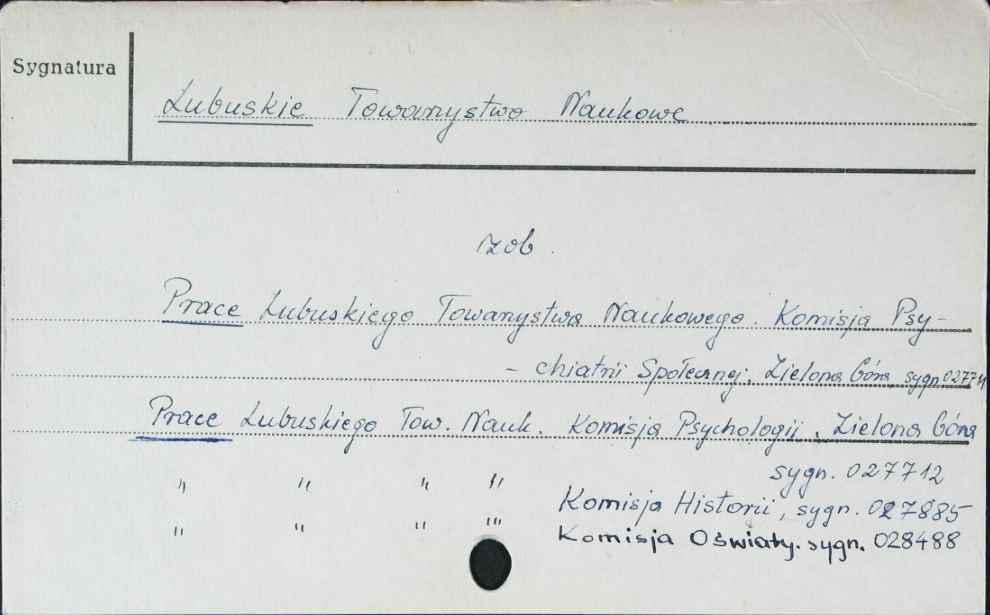 Sygnatura
Lubuskie Towarzystwo Naukowe
zob.
Prace Lubuskiego Towarzystwa Naukowego. Komisja Psy-
- chiatrii Społecznej, Zielona Góra, sygn. 027711
Prace Lubuskiego Tow. Nauk. Komisja Psychologii, Zielona Góra
sygn. 027712
" " " " Komisja Historii, sygn. 027885
" " " " Komisja Oświaty. sygn. 028488